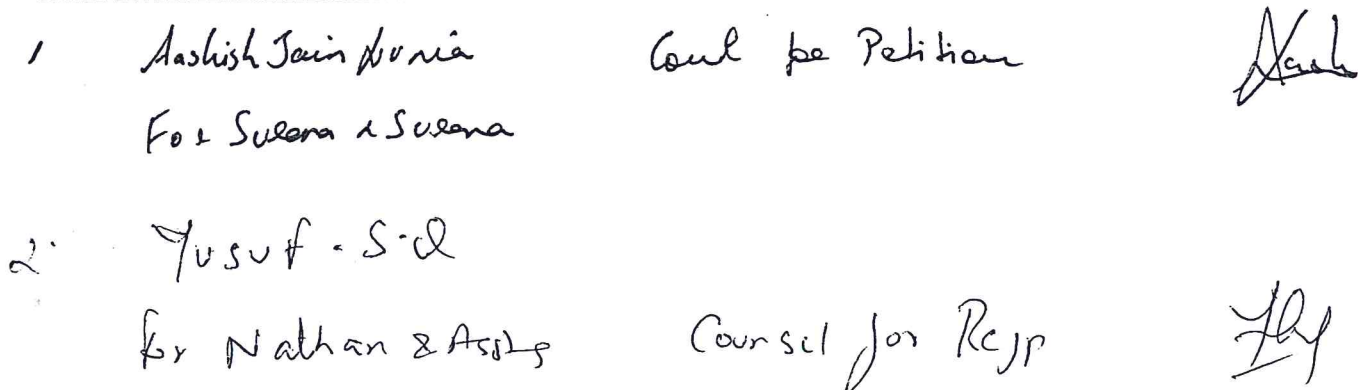 1 Aashish Jain Lunia Counl for Petition
For Surana & Surana
2. Yusuf. S.
for Nathan & Assts Counsel for Resp